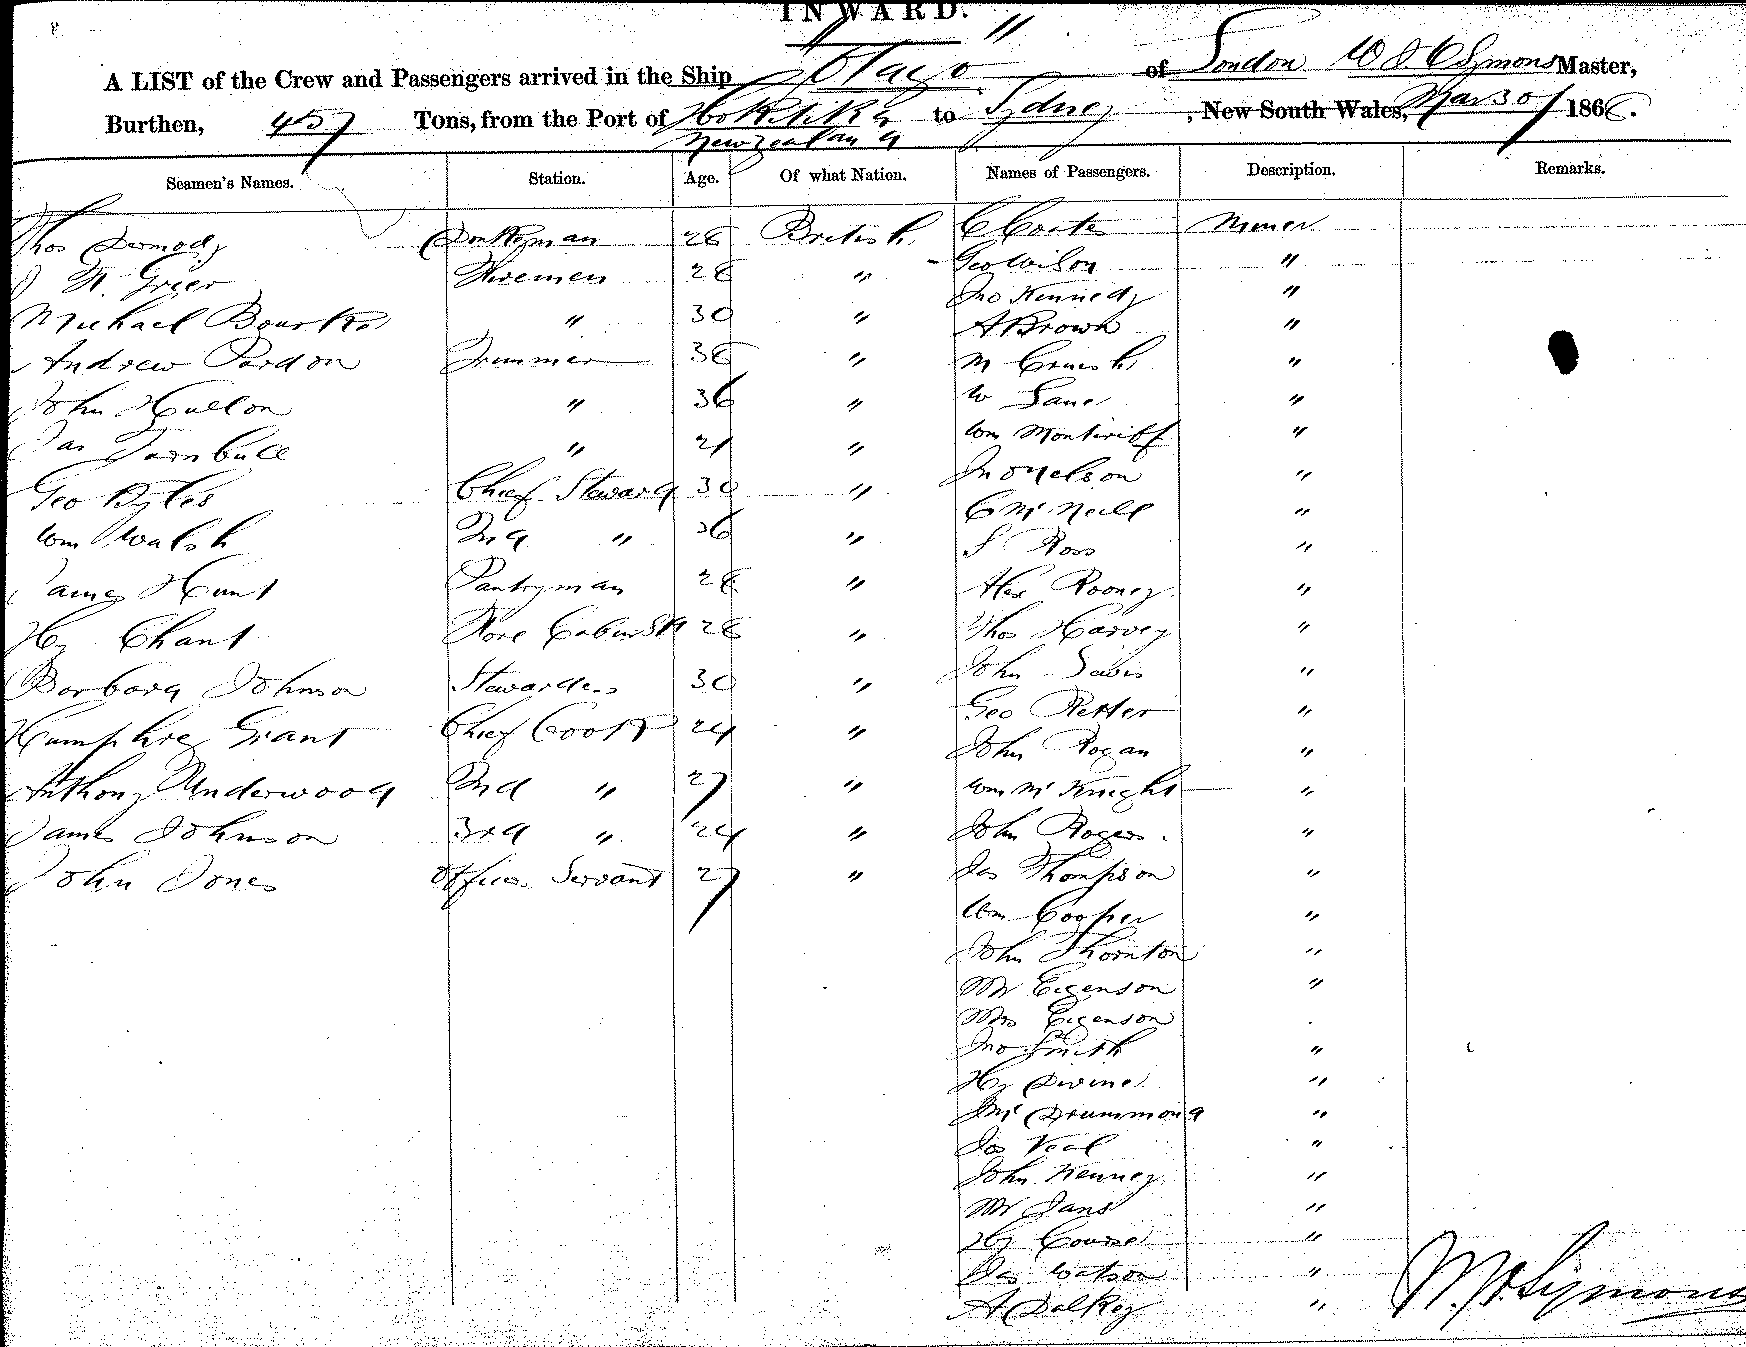 INWARD.
A LIST of the Crew and Passengers arrived in the Ship Otago of London W J C Symons Master,
Burthen, 457 Tons, from the Port of Hokitika to Sydney, New South Wales, Mar 30/ 1866.
New Zealand
Seamen's Names. Station. Age. Of what Nation. Names of Passengers. Description. Remarks.
Thos Dermody Donkeyman 28 British C Coates Miner
Grier Firemen 28 " Geo Wilson "
Jno Kennedy "
Michael Bourke " 30 " A Brown "
Andrew Pardon Trimmer 36 " M "
John " 36 " W Lane "
Jas Turnbull " 21 " Wm "
Jno Nelson "
Geo Byles Chief Steward 30 " C McNeill "
Wm Walsh 2nd " 36 " Ross "
James Hunt Pantryman 28 " Alex Rooney "
Hy Chant Fore Cabin 28 " Thos Harvey "
Barbara Johnson Stewardess 30 " John Davis "
Geo "
Humphrey Grant Chief Cook 24 " John Rogan "
Anthony Underwood 2nd " 27 " Wm McKnight "
James Johnson 3rd " 24 " John Rogers. "
John Jones Officers Servant 27 " Jas Thompson "
Wm Cooper "
John Thornton "
Mr Eigenson "
Mrs Eigenson
Jno Smith "
Hy Divine "
Drummond "
Jas Veal "
John Kenney "
Mr Jans "
Hy "
Jas Watson "
A Dalkey "
Symons